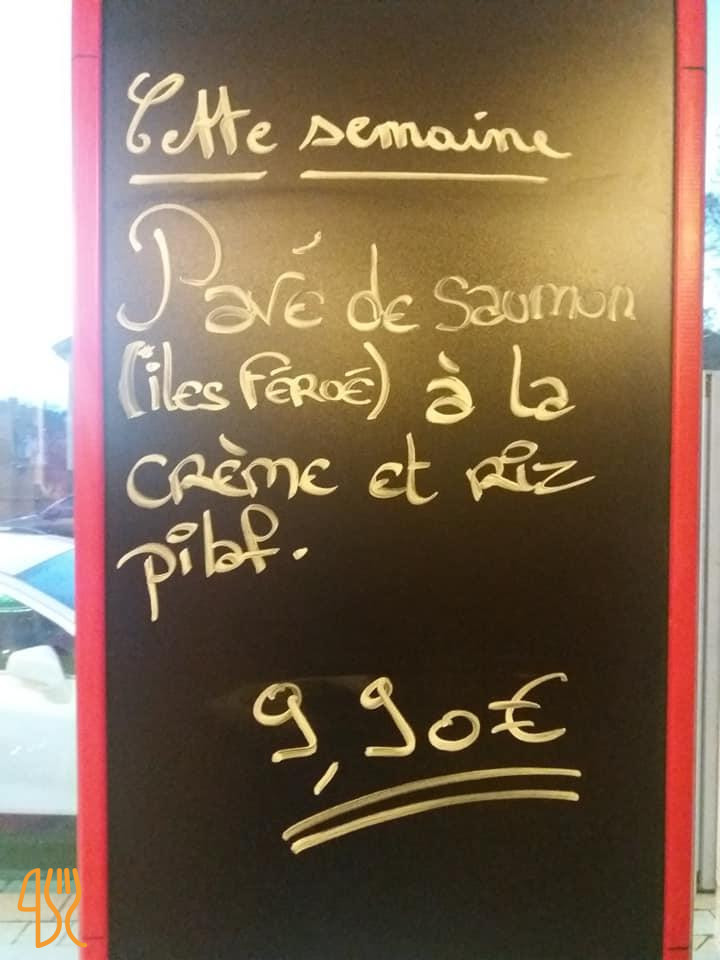 Cette semaine
Pavé de saumon
(îles Féroé) à la
crème et riz
pilaf.
9,90€